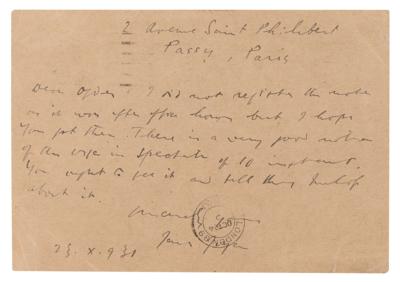 2 Avenue Saint Philibert
Passy, Paris
Dear Ogden: I did not register the notes
as it was after office hours but I hope
you got them. There is a very good notice
of the disc in Spectator of 10 instant.
You ought to get it and tell
about it.
LONDON
23.X.931